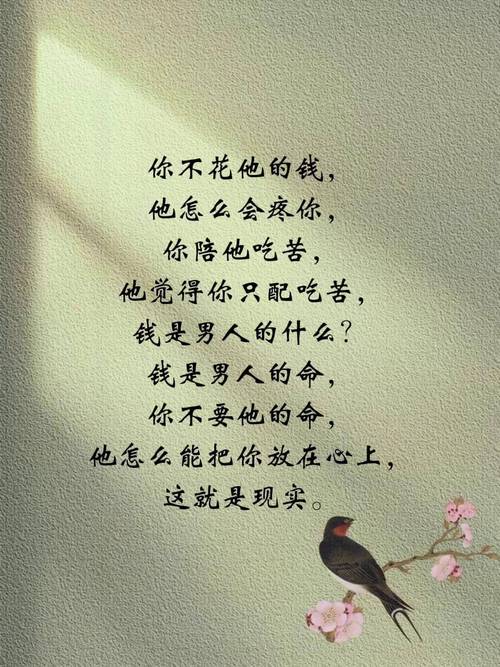 你不花他的钱，
他怎么会疼你，
你陪他吃苦，
他觉得你只配吃苦，
钱是男人的什么？
钱是男人的命，
你不要他的命，
他怎么能把你放在心上，
这就是现实。